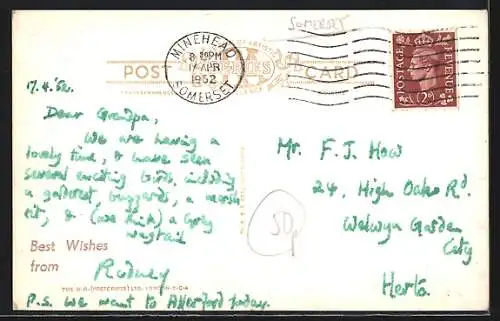 SOMERSET
MINEHEAD
8 30PM
17 APR
1952
SOMERSET
POST CARD
POSTAGE REVENUE
2D
17.4.52.
Dear Grandpa,
We are having a
lovely time, & have seen
several exciting birds, including
a goldcrest, buzzards, a marsh
tit, & (we think) a Grey
wagtail
Best Wishes
from
Rodney
P.S. We want to Allerford today.
Mr. F. J. How
24, High Oaks Rd.
Welwyn Garden
City
Herts.
50p